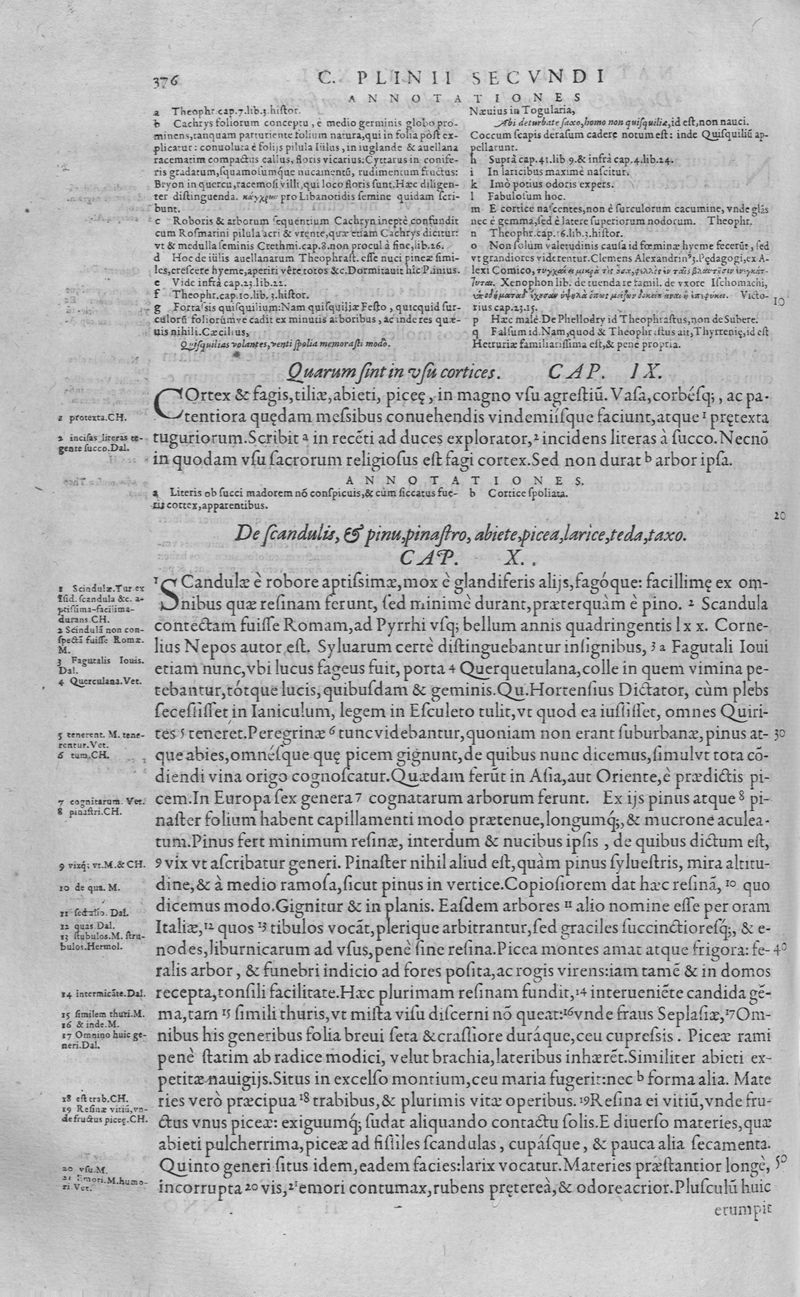 376
C. PLINII SECVNDI
ANNOTATIONES
a Theophr. cap.7.lib.3.histor.
b Cachrys foliorum conceptu, è medio germinis globo pro-
minens, tanquam parturiente folium natura, qui in folia pòst ex-
plicatur: conuoluta è folijs pilula Iülus, in iuglande & auellana
racematim compactus callus, floris vicarius: Cyttarus in conife-
ris gradatum, squamosumque nucamentũ, rudimentum fructus:
Bryon in quercu, racemosi villi, qui loco floris sunt. Hæc diligen-
ter distinguenda. κάγχρυν pro Libanotidis semine quidam scri-
bunt.
c Roboris & arborum sequentium Cachryn ineptè confundit
cum Rosmarini pilula acri & vrente, quæ etiam Cachrys dicitur:
vt & medulla seminis Crethmi. cap.8. non procul à fine, lib.26.
d Hoc de iülis auellanarum Theophrast. esse nuci pineæ simi-
les, crescere hyeme, aperiri vêre totos &c. Dormitauit hîc Plinius.
e Vide infrà cap.23.lib.22.
f Theophr. cap.10.lib.3.histor.
g Fortassis quisquilium: Nam quisquiliæ Festo, quicquid sur-
culorũ foliorumve cadit ex minutis arboribus, ac inde res quæ-
uis nihili. Cæcilius,
Quisquilias volantes, venti spolia memorasti modò.
Næuius in Togularia,
Abi deturbate saxo, homo non quisquiliæ, id est, non nauci.
Coccum scapis derasum cadere notum est: inde Quisquiliũ ap-
pellarunt.
h Suprà cap.41.lib 9. & infrà cap.4.lib.24.
i In laricibus maximè nascitur.
k Imò potius odoris expers.
l Fabulosum hoc.
m E cortice nascentes, non è surculorum cacumine, vnde glãs
nec è gemma, sed è latere superiorum nodorum. Theophr.
n Theophr. cap.16.lib.3.histor.
o Non solum valetudinis causa id fœminæ hyeme fecerũt, sed
vt grandiores viderentur. Clemens Alexandrin⁹ 3. Pędagogi, ex A-
lexi Comico,
Xenophon lib. de tuenda re famil. de vxore Ischomachi,
Victo-
rius cap.23.15.
10
p Hæc malè. De Phellodry id Theophrastus, non de Subere.
q Falsum id. Nam, quod & Theophrastus ait, Thyrrenię, id est
Hetruriæ familiarissima est, & penè propria.
Quarum sint in vsu cortices. CAP. IX.
COrtex & fagis, tiliæ, abieti, picęę, in magno vsu agrestiũ. Vasa, corbésq;, ac pa-
tentiora quędam messibus conuehendis vindemiísque faciunt, atque ¹ prętexta
1 protexta. CH.
tuguriorum. Scribit ᵃ in recẽti ad duces explorator, ² incidens literas à succo. Necnõ
2 incisas literas te-
gente succo. Dal.
in quodam vsu sacrorum religiosus est fagi cortex. Sed non durat ᵇ arbor ipsa.
ANNOTATIONES.
a Literis ob succi madorem nõ conspicuis, & cùm siccatus fue-
rit cortex, apparentibus.
b Cortice spoliata.
20
De scandulis, & pinu, pinastro, abiete, picea, larice, teda, taxo.
CAP. X.
¹ SCandulæ è robore aptissimæ, mox è glandiferis alijs, fagóque: facillimę ex om-
1 Scindulæ. Tur ex
Isid. scandula &c. a-
ptissima-facilima-
durans. CH.
nibus quæ resinam ferunt, sed minimè durant, præterquàm è pino. ² Scandula
contectam fuisse Romam, ad Pyrrhi vsq; bellum annis quadringentis lxx. Corne-
2 Scindulã non con-
spectã fuisse Romæ.
M.
lius Nepos autor est. Syluarum certè distinguebantur insignibus, ³ ᵃ Fagutali Ioui
etiam nunc, vbi lucus fageus fuit, porta ⁴ Querquetulana, colle in quem vimina pe-
3 Fagutalis Iouis.
Dal.
4 Querculana. Vet.
tebantur, tótque lucis, quibusdam & geminis. Qu. Hortensius Dictator, cùm plebs
secessisset in Ianiculum, legem in Esculeto tulit, vt quod ea iussisset, omnes Quiri-
tes ⁵ teneret. Peregrinæ ⁶ tunc videbantur, quoniam non erant suburbanæ, pinus at-
30
5 tenerent. M. tene-
rentur. Vet.
6 tum. CH.
que abies, omnésque quę picem gignunt, de quibus nunc dicemus, simul vt tota cõ-
diendi vina origo cognoscatur. Quædam ferũt in Asia, aut Oriente, è prædictis pi-
cem. In Europa sex genera ⁷ cognatarum arborum ferunt. Ex ijs pinus atque ⁸ pi-
7 cognitarum. Vet.
8 pinastri. CH.
naster folium habent capillamenti modo prætenue, longumq;, & mucrone aculea-
tum. Pinus fert minimum resinæ, interdum & nucibus ipsis, de quibus dictum est,
⁹ vix vt ascribatur generi. Pinaster nihil aliud est, quàm pinus syluestris, mira altitu-
9 vixq; vt. M. & CH.
dine, & à medio ramosa, sicut pinus in vertice. Copiosiorem dat hæc resinã, ¹⁰ quo
10 de qua. M.
dicemus modo. Gignitur & in planis. Easdem arbores ¹¹ alio nomine esse per oram
11 sed alio. Dal.
Italiæ, ¹² quos ¹³ tibulos vocãt, plerique arbitrantur, sed graciles succinctioresq;, & e-
12 quas Dal.
13 stubulos. M. stru-
bulos. Hermol.
nodes, liburnicarum ad vsus, penè sine resina. Picea montes amat atque frigora: fe-
40
ralis arbor, & funebri indicio ad fores posita, ac rogis virens: iam tamẽ & in domos
recepta, tonsili facilitate. Hæc plurimam resinam fundit, ¹⁴ interueniẽte candida gẽ-
14 intermicãte. Dal.
ma, tam ¹⁵ simili thuris, vt mista visu discerni nõ queat: ¹⁶ vnde fraus Seplasiæ, ¹⁷ Om-
15 similem thuri. M.
16 & inde. M.
nibus his generibus folia breui seta & crassiore duráque, ceu cupressis. Piceæ rami
17 Omnino huic ge-
neri. Dal.
penè statim ab radice modici, velut brachia, lateribus inhærẽt. Similiter abieti ex-
petitæ nauigijs. Situs in excelso montium, ceu maria fugerit: nec ᵇ forma alia. Mate
ries verò præcipua ¹⁸ trabibus, & plurimis vitæ operibus. ¹⁹ Resina ei vitiũ, vnde fru-
18 est trab. CH.
19 Resinæ vitiũ, vn-
de fructus piceę. CH.
ctus vnus piceæ: exiguumq; sudat aliquando contactu solis. E diuerso materies, quæ
abieti pulcherrima, piceæ ad fissiles scandulas, cupásque, & pauca alia secamenta.
Quinto generi situs idem, eadem facies: larix vocatur. Materies præstantior longè,
50
20 vsu. M.
incorrupta ²⁰ vis, ²¹ emori contumax, rubens pręterea, & odore acrior. Plusculũ huic
21 Emori. M. humo-
ri Vet.
erumpit